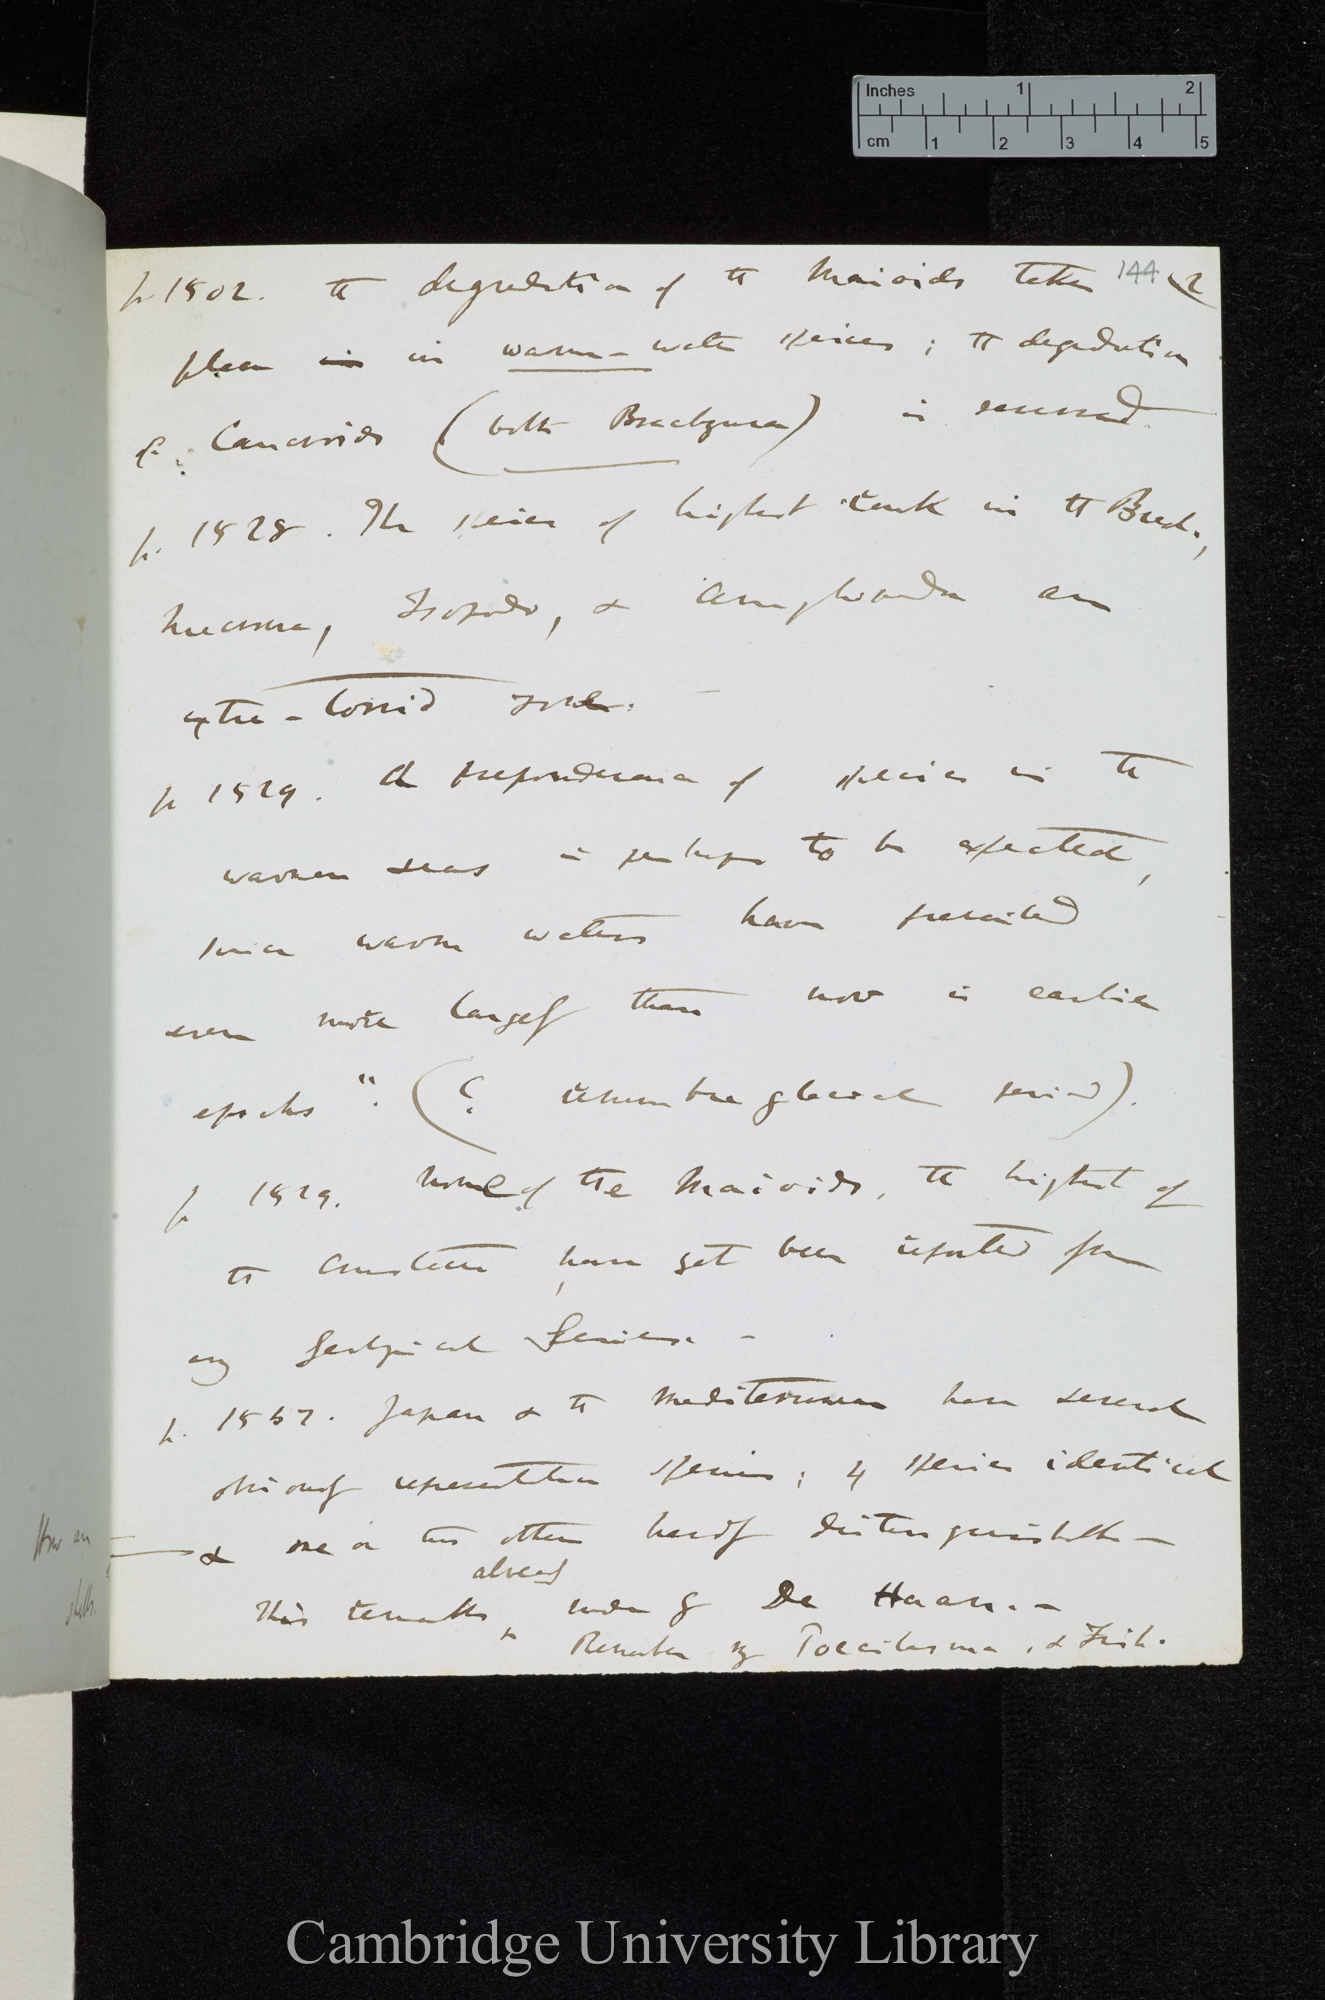 Inches 1 2
cm 1 2 3 4 5
144 (2
p. 1502. The degradation of the Maioids takes
place in in warm-water species; the degradation
of Cancroids (both Brachyura) is reversed.
p. 1528. The species of highest rank in the Brach.,
Macroura, Isopods, & Amphipoda are
extra-torrid
p 1529. A preponderance of species in the
warmer seas is perhaps to be expected,
since warm waters have prevailed
even more largely than now in earlier
epochs". (? remember glacial period).
p 1529. None of the Maioids, the highest of
the Crustacea have yet been reported from
any Geological Series. —
p. 1557. Japan & the Mediterranean have several
obviously representative species; 4 species identical
& one or two others hardly distinguishable —
already
This remark made by De Haan. —
Remember by & Fish.
How are
shells.
Cambridge University Library